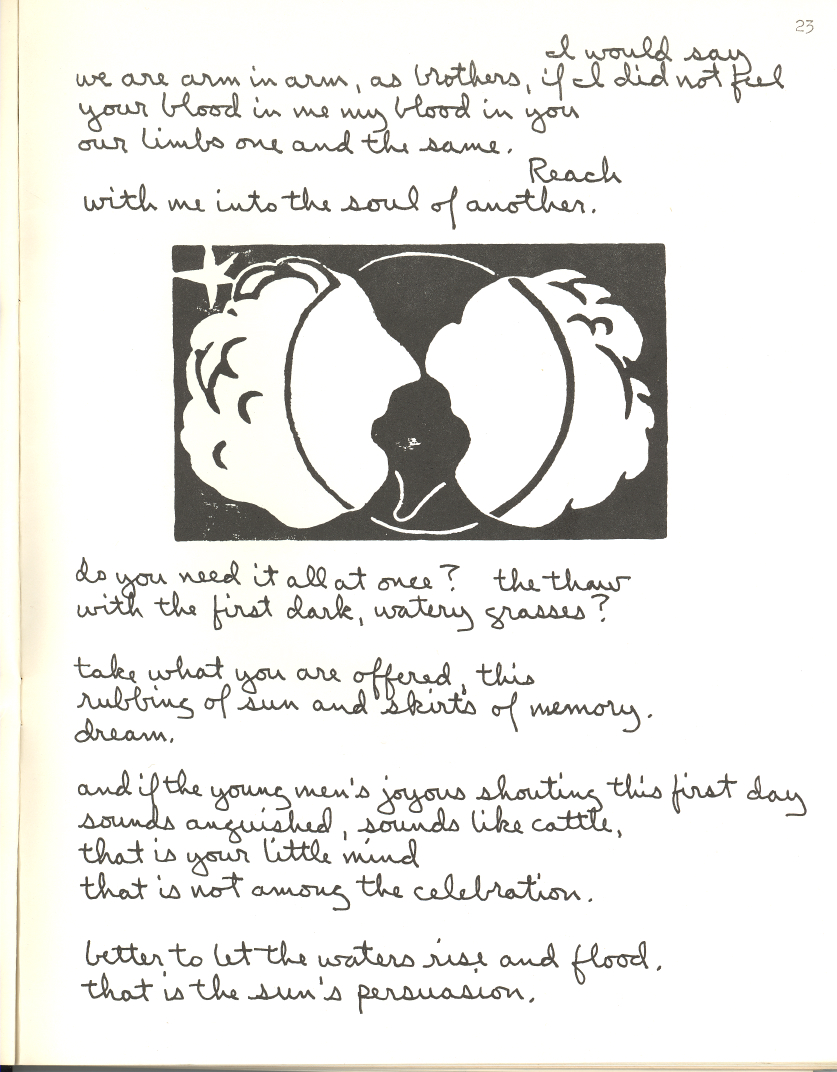 23
I would say
we are arm in arm, as brothers, if I did not feel
your blood in me my blood in you
our limbs one and the same.
Reach
with me into the soul of another.
do you need it all at once? the thaw
with the first dark, watery grasses?
take what you are offered, this
rubbing of sun and skirts of memory.
dream.
and if the young men's joyous shouting this first day
sounds anguished, sounds like cattle,
that is your little mind
that is not among the celebration.
better to let the waters rise and flood.
that is the sun's persuasion.